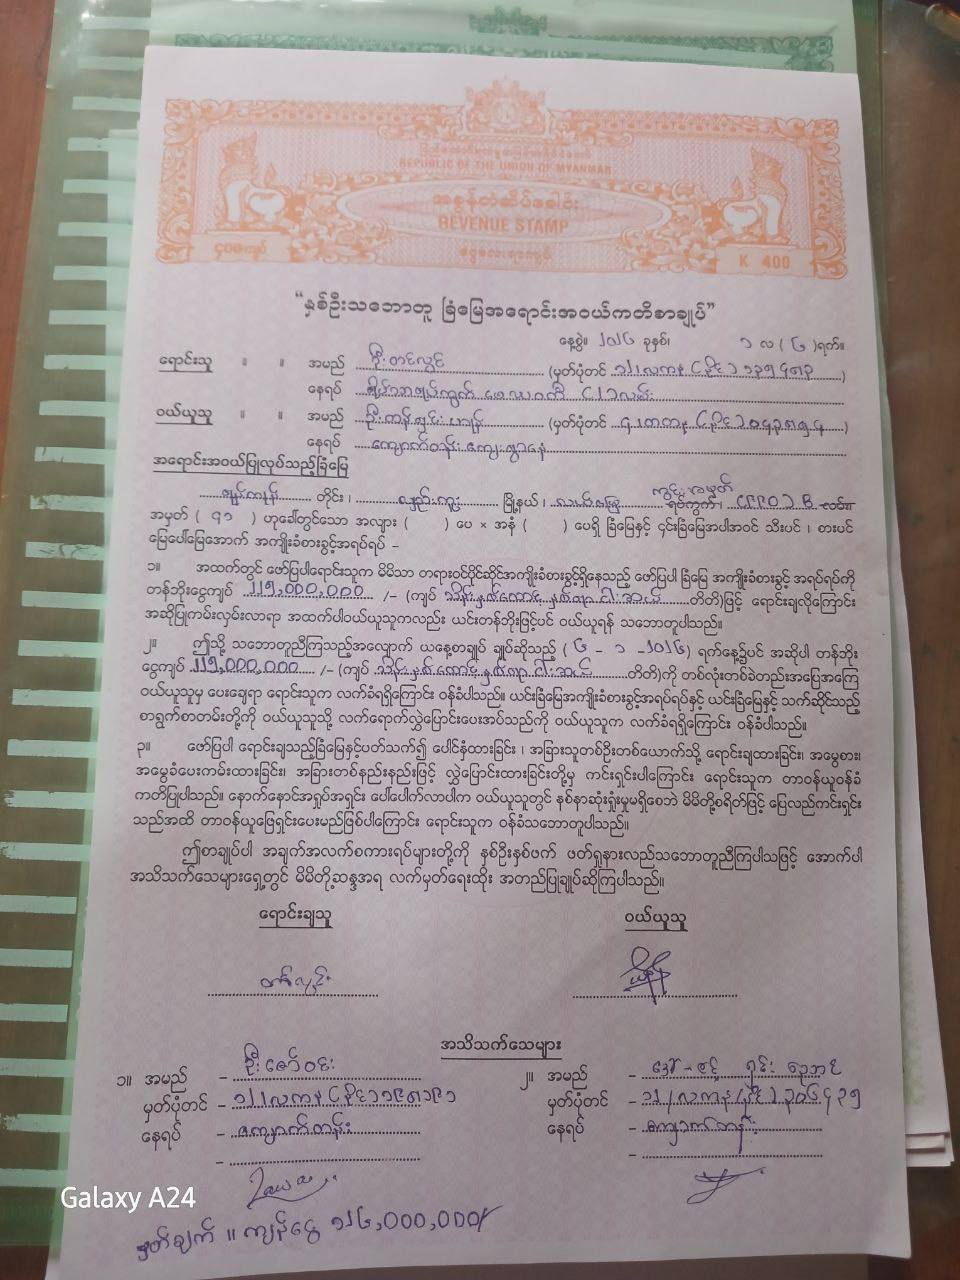 REPUBLIC OF THE UNION OF MYANMAR
အခွန်တံဆိပ်ခေါင်း
REVENUE STAMP
၄၀၀ကျပ်
ငွေလေးရာကျပ်
K 400
“နှစ်ဦးသဘောတူ ခြံမြေအရောင်းအဝယ်ကတိစာချုပ်”
နေ့စွဲ။ ၂၀၂၆ ခုနှစ်၊ ၁ လ ( ၆ )ရက်။
ရောင်းသူ ။ ။ အမည် ဦးတင်လွင် (မှတ်ပုံတင်
နေရပ်
ဝယ်ယူသူ ။ ။ အမည် (မှတ်ပုံတင်
နေရပ် ကျောက်တန်း
အရောင်းအဝယ်ပြုလုပ်သည့်ခြံမြေ
ရန်ကုန် တိုင်း ၊ လှည်းကူး မြို့နယ် ၊ ရပ်ကွက် ၊
အမှတ် ( ၇၁ ) ဟုခေါ်တွင်သော အလျား ( ) ပေ × အနံ ( ) ပေရှိ ခြံမြေနှင့် ၎င်းခြံမြေအပါအဝင် သီးပင် ၊ စားပင်
မြေပေါ်မြေအောက် အကျိုးခံစားခွင့်အရပ်ရပ် –
၁။ အထက်တွင် ဖော်ပြပါရောင်းသူက မိမိသာ တရားဝင်ပိုင်ဆိုင်အကျိုးခံစားခွင့်ရှိနေသည့် ဖော်ပြပါ ခြံမြေ အကျိုးခံစားခွင့် အရပ်ရပ်ကို
တန်ဘိုးငွေကျပ် ၂၂၅,၀၀၀,၀၀၀ /– (ကျပ် သိန်းနှစ်ထောင့်နှစ်ရာငါးဆယ် တိတိ)ဖြင့် ရောင်းချလိုကြောင်း
အဆိုပြုကမ်းလှမ်းလာရာ အထက်ပါဝယ်ယူသူကလည်း ယင်းတန်ဘိုးဖြင့်ပင် ဝယ်ယူရန် သဘောတူပါသည်။
၂။ ဤသို့ သဘောတူညီကြသည့်အလျောက် ယနေ့စာချုပ် ချုပ်ဆိုသည့် ( ၆ – ၁ – ၂၀၂၆) ရက်နေ့၌ပင် အဆိုပါ တန်ဘိုး
ငွေကျပ် ၂၂၅,၀၀၀,၀၀၀ /– (ကျပ် သိန်းနှစ်ထောင့်နှစ်ရာငါးဆယ် တိတိ)ကို တစ်လုံးတစ်ခဲတည်းအပြေအကြေ
ဝယ်ယူသူမှ ပေးချေရာ ရောင်းသူက လက်ခံရရှိကြောင်း ဝန်ခံပါသည်။ ယင်းခြံမြေအကျိုးခံစားခွင့်အရပ်ရပ်နှင့် ယင်းခြံမြေနှင့် သက်ဆိုင်သည့်
စာရွက်စာတမ်းတို့ကို ဝယ်ယူသူသို့ လက်ရောက်လွှဲပြောင်းပေးအပ်သည်ကို ဝယ်ယူသူက လက်ခံရရှိကြောင်း ဝန်ခံပါသည်။
၃။ ဖော်ပြပါ ရောင်းချသည့်ခြံမြေနှင့်ပတ်သက်၍ ပေါင်နှံထားခြင်း ၊ အခြားသူတစ်ဦးတစ်ယောက်သို့ ရောင်းချထားခြင်း၊ အမွေစား၊
အမွေခံပေးကမ်းထားခြင်း၊ အခြားတစ်နည်းနည်းဖြင့် လွှဲပြောင်းထားခြင်းတို့မှ ကင်းရှင်းပါကြောင်း ရောင်းသူက တာဝန်ယူဝန်ခံ
ကတိပြုပါသည်။ နောက်နောင်အရှုပ်အရှင်း ပေါ်ပေါက်လာပါက ဝယ်ယူသူတွင် နစ်နာဆုံးရှုံးမှုမရှိစေဘဲ မိမိတို့စရိတ်ဖြင့် ပြေလည်ကင်းရှင်း
သည်အထိ တာဝန်ယူဖြေရှင်းပေးမည်ဖြစ်ပါကြောင်း ရောင်းသူက ဝန်ခံသဘောတူပါသည်။
ဤစာချုပ်ပါ အချက်အလက်စကားရပ်များတို့ကို နှစ်ဦးနှစ်ဖက် ဖတ်ရှုနားလည်သဘောတူညီကြပါသဖြင့် အောက်ပါ
အသိသက်သေများရှေ့တွင် မိမိတို့ဆန္ဒအရ လက်မှတ်ရေးထိုး အတည်ပြုချုပ်ဆိုကြပါသည်။
ရောင်းချသူ ဝယ်ယူသူ
အသိသက်သေများ
၁။ အမည် – ဦးဇော်ဝင်း ၂။ အမည် –
မှတ်ပုံတင် – မှတ်ပုံတင် –
နေရပ် – ကျောက်တန်း နေရပ် – ကျောက်တန်း
မှတ်ချက် ။ ကျန်ငွေ ၁၂၆,၀၀၀,၀၀၀/
Galaxy A24